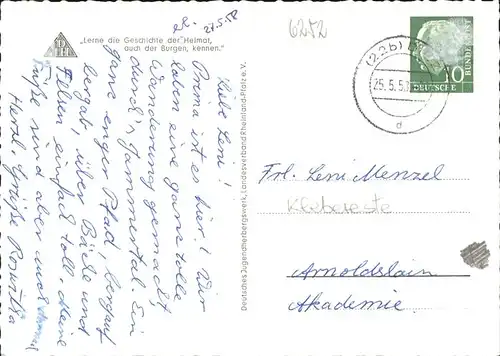 „Lerne die Geschichte der Heimat,
auch der Burgen, kennen."
27.5.58
6252
(22b)
25.5.5
d
10
DEUTSCHE
BUNDESPOST
Liebe Leni!
Prima ist es hier! Wir
haben eine ganz tolle
Wanderung gemacht,
durch's Jammertal. Ein
ganz enger Pfad, bergauf
bergab, über Bäche und
Felsen einfach toll. Meine
Füße sind aber auch
Herzl. Grüße Roswitha
Deutsches Jugendherbergswerk, Landesverband Rheinland-Pfalz e. V.
Frl. Leni Menzel
Klebereste
Arnoldshain
Akademie.